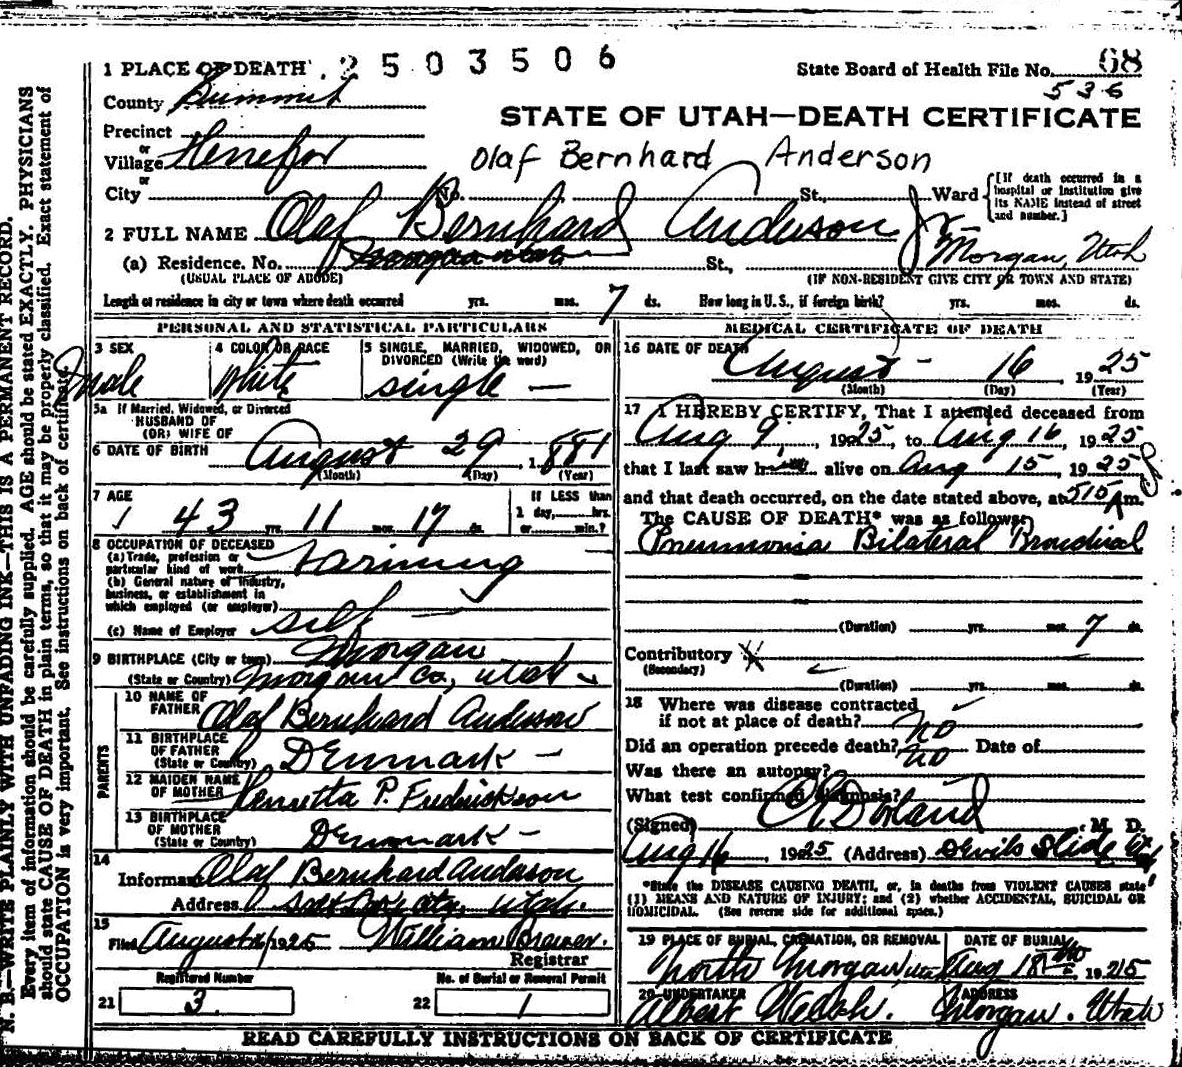 2503506
1 PLACE OF DEATH
State Board of Health File No. 68
536
County Summit
STATE OF UTAH—DEATH CERTIFICATE
Precinct
or
Village Henefer
Olaf Bernhard Anderson
or
City No. St., Ward
[If death occurred in a hospital or institution give its NAME instead of street and number.]
2 FULL NAME Olaf Bernhard Anderson Jr
(a) Residence. No. St., Morgan, Utah
(USUAL PLACE OF ABODE) (IF NON-RESIDENT GIVE CITY OR TOWN AND STATE)
Length of residence in city or town where death occurred yrs. mos. 7 ds. How long in U.S., if foreign birth? yrs. mos. ds.
PERSONAL AND STATISTICAL PARTICULARS
3 SEX
male
4 COLOR OR RACE
White
5 SINGLE, MARRIED, WIDOWED, OR
DIVORCED (Write the word)
single —
5a If Married, Widowed, or Divorced
HUSBAND OF
(OR) WIFE OF
6 DATE OF BIRTH August 29 1881
(Month) (Day) (Year)
7 AGE
43 yrs. 11 mos. 17 ds.
If LESS than
1 day, hrs.
or min.?
8 OCCUPATION OF DECEASED
(a) Trade, profession or
particular kind of work Farming
(b) General nature of industry,
business, or establishment in
which employed (or employer)
(c) Name of Employer self —
9 BIRTHPLACE (City or town) Morgan
(State or Country) Morgan Co, Utah
PARENTS
10 NAME OF
FATHER Olaf Bernhard Anderson
11 BIRTHPLACE
OF FATHER
(State or Country) Denmark —
12 MAIDEN NAME
OF MOTHER Henretta P. Fredrickson
13 BIRTHPLACE
OF MOTHER
(State or Country) Denmark —
14
Informant Olaf Bernhard Anderson
Address Salt Lake City, Utah.
15
Filed August 1925 William Brewer.
Registrar
Registered Number No. of Burial or Removal Permit
21 3. 22 1
MEDICAL CERTIFICATE OF DEATH
16 DATE OF DEATH
August - 16 1925
(Month) (Day) (Year)
17 I HEREBY CERTIFY, That I attended deceased from
Aug 9, 1925, to Aug 16, 1925
that I last saw him alive on Aug 15, 1925
and that death occurred, on the date stated above, at 515 A m.
The CAUSE OF DEATH* was as follows:
Pneumonia Bilateral Bronchial
(Duration) yrs. mos. 7 ds.
Contributory
(Secondary)
(Duration) yrs. mos. ds.
18 Where was disease contracted
if not at place of death?
Did an operation precede death? no Date of
Was there an autopsy? no
What test confirmed diagnosis?
(Signed) M. D.
Aug 16, 1925 (Address) Devils Slide Utah
*State the DISEASE CAUSING DEATH, or, in deaths from VIOLENT CAUSES state
(1) MEANS AND NATURE OF INJURY; and (2) whether ACCIDENTAL, SUICIDAL OR
HOMICIDAL. (See reverse side for additional space.)
19 PLACE OF BURIAL, CREMATION, OR REMOVAL
North Morgan, Utah
DATE OF BURIAL
Aug 18 1925
20 UNDERTAKER
Albert Welch.
ADDRESS
Morgan. Utah
READ CAREFULLY INSTRUCTIONS ON BACK OF CERTIFICATE
N. B.—WRITE PLAINLY WITH UNFADING INK—THIS IS A PERMANENT RECORD.
Every item of information should be carefully supplied. AGE should be stated EXACTLY. PHYSICIANS
should state CAUSE OF DEATH in plain terms, so that it may be properly classified. Exact statement of
OCCUPATION is very important. See instructions on back of certificate.